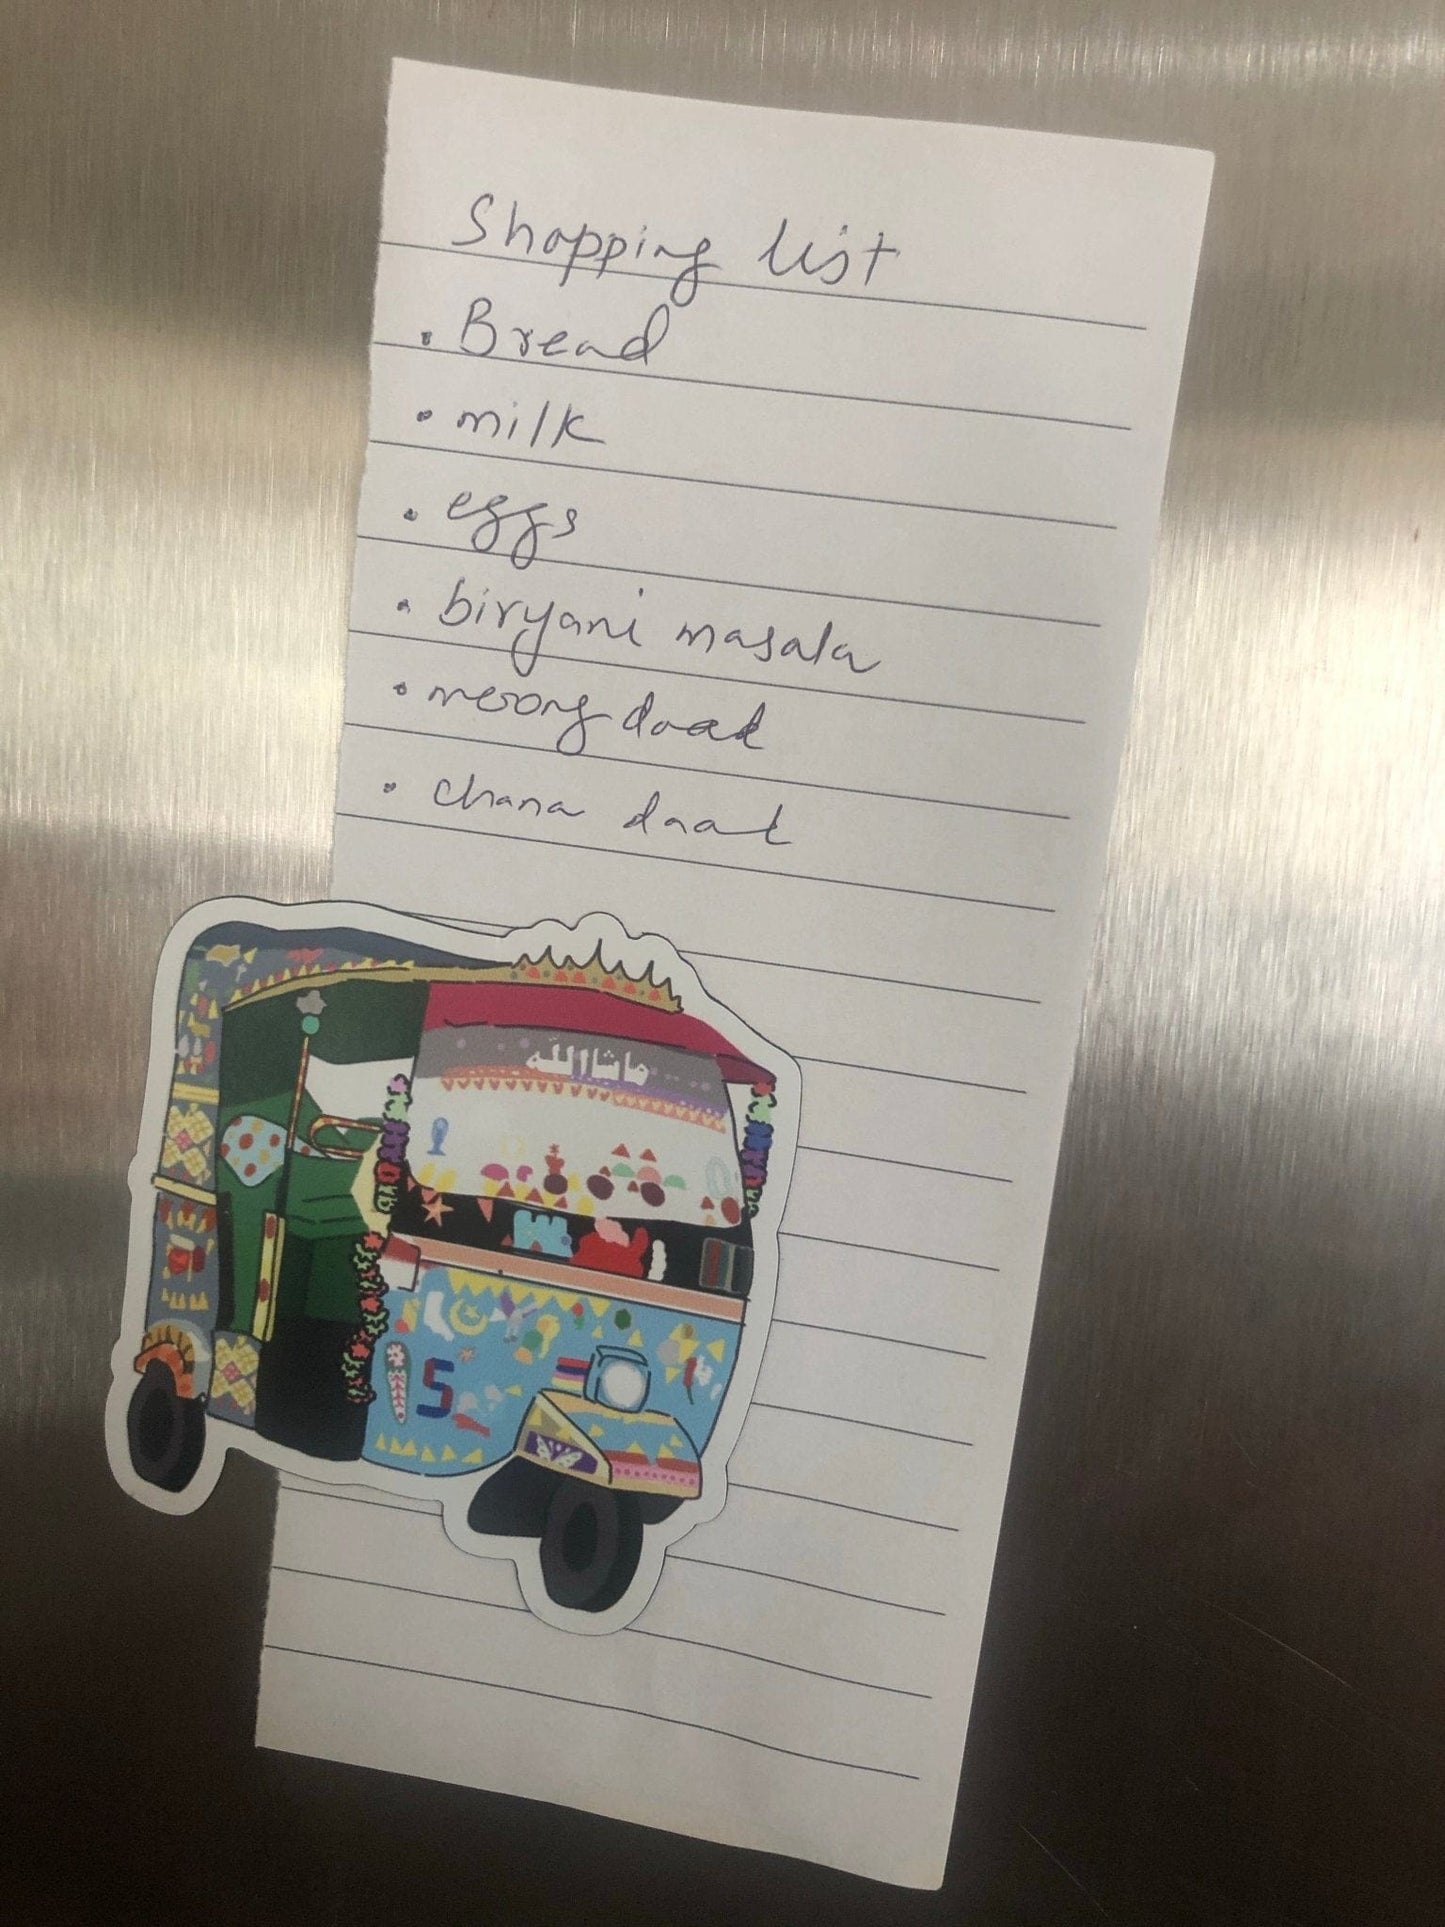 Shopping list
• Bread
• milk
• eggs
• biryani masala
• moong daal
• chana daal
ماشاالله
5